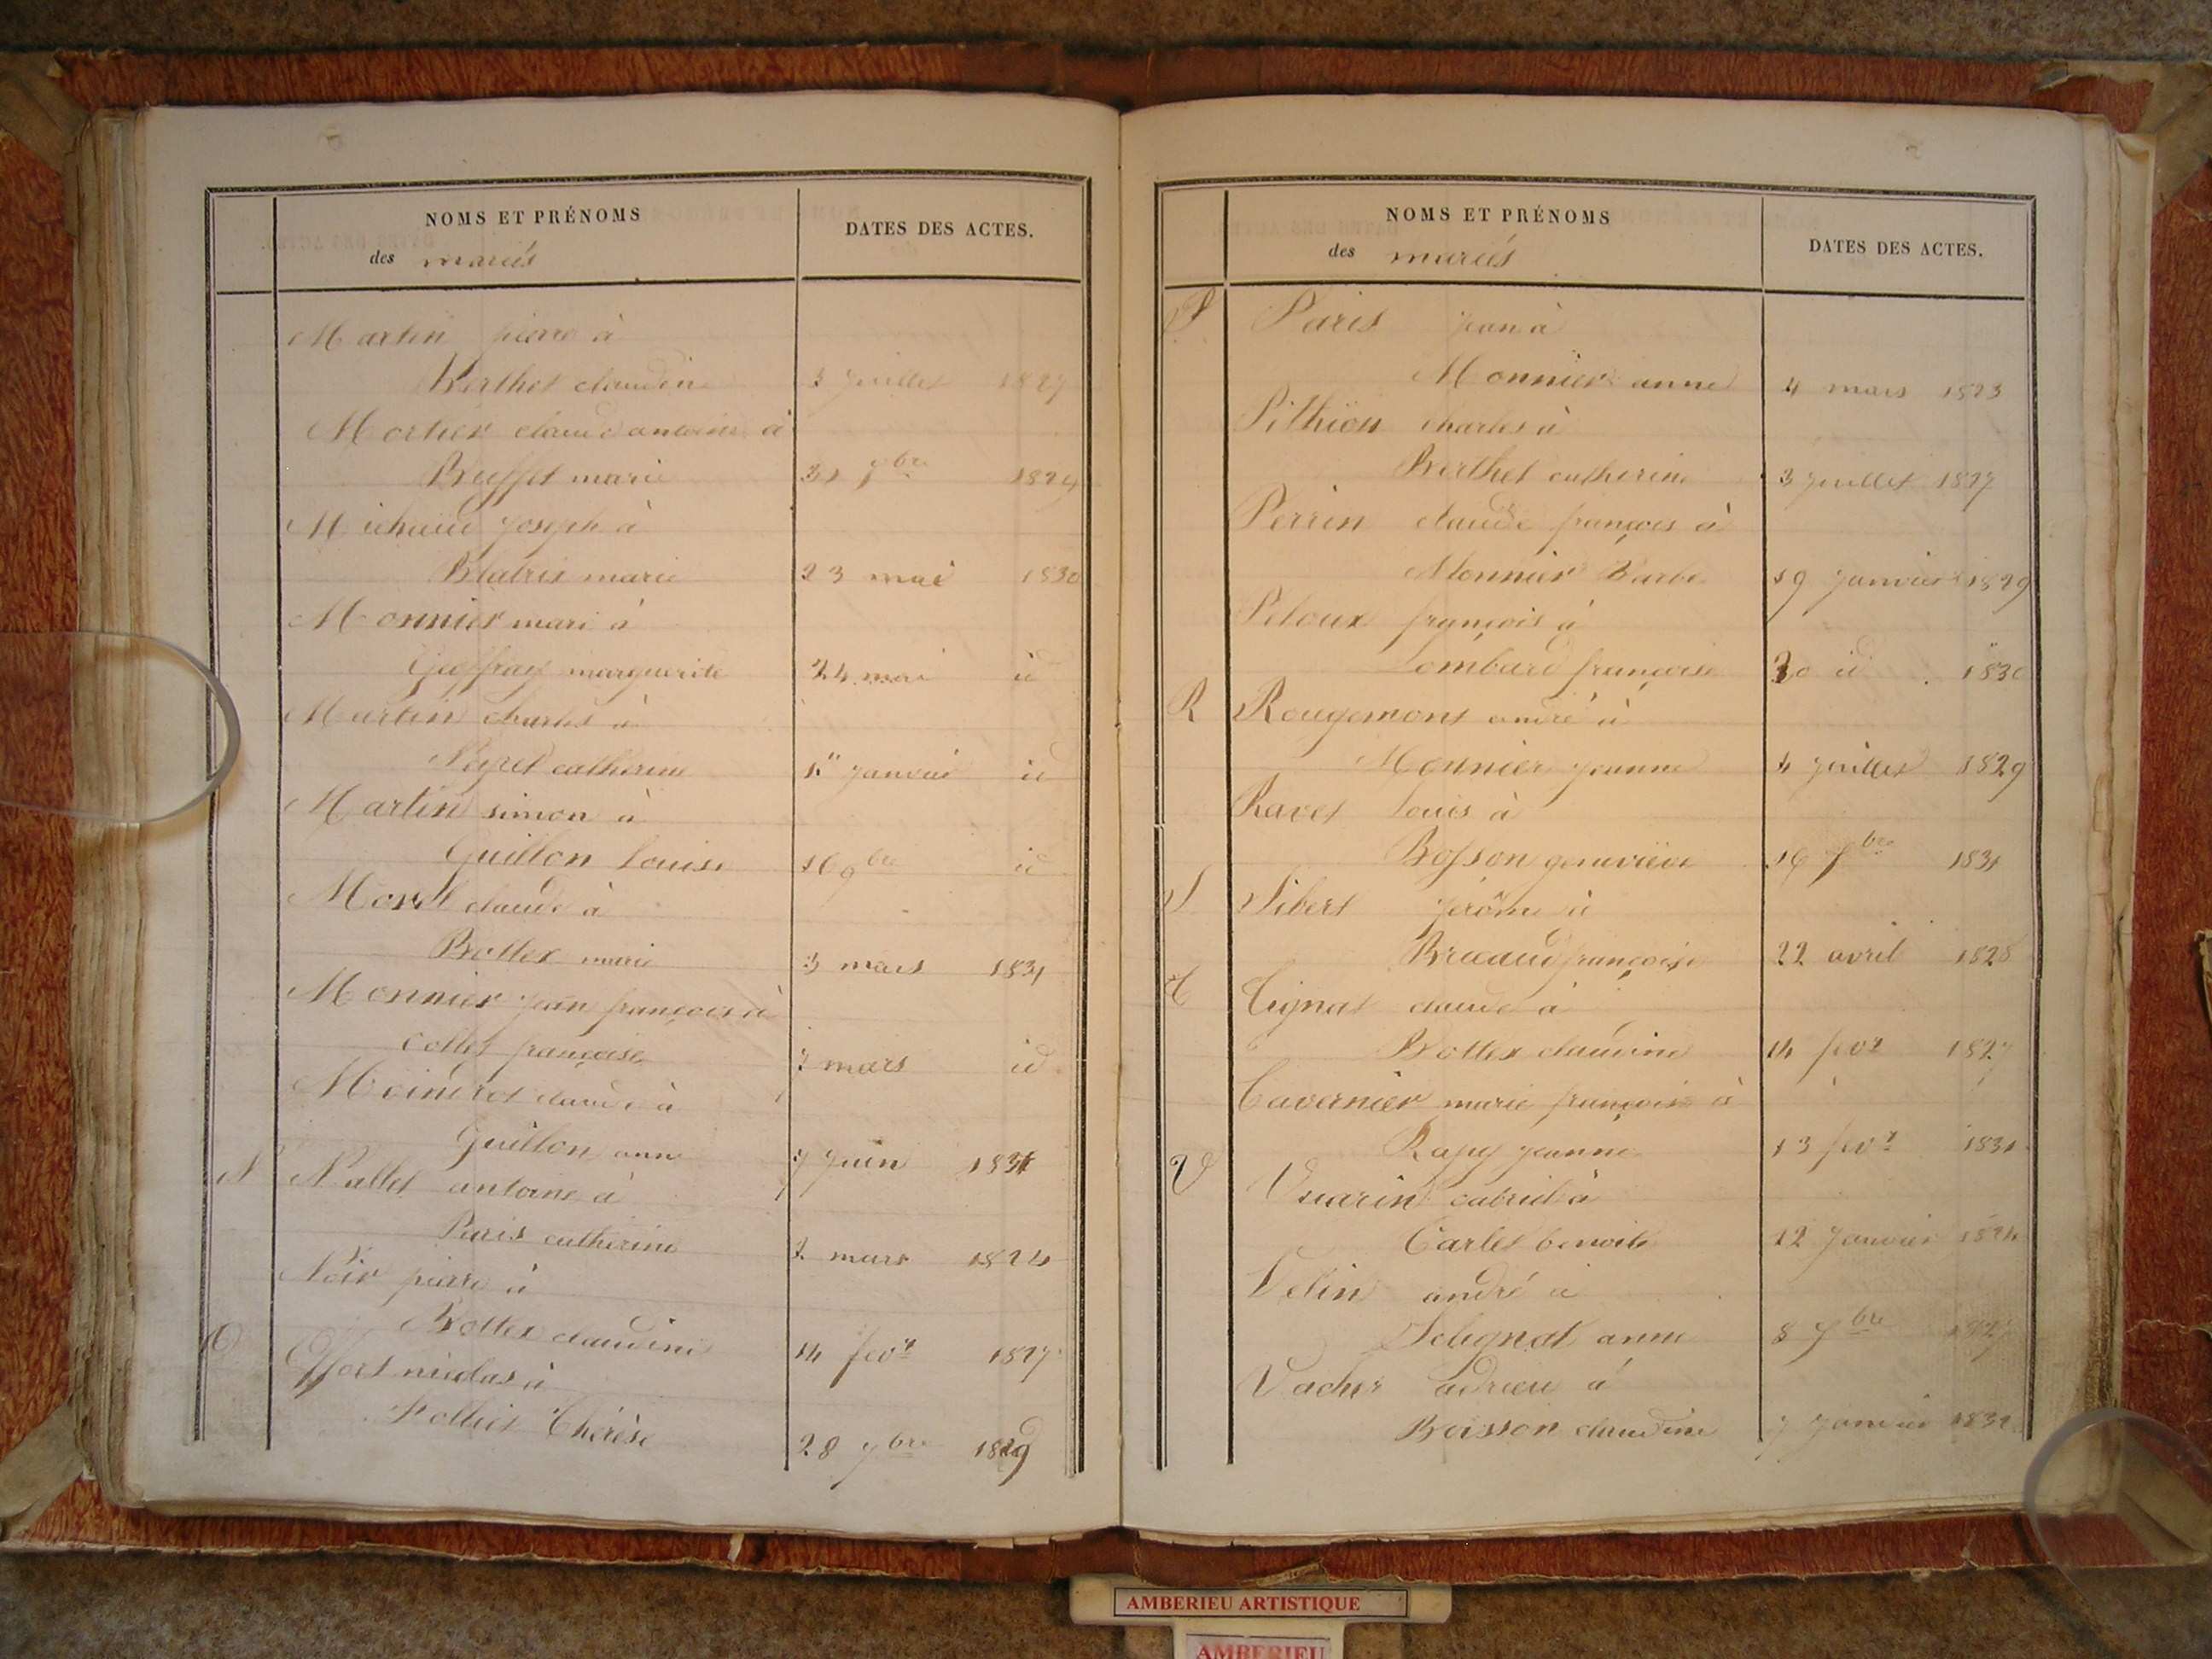 NOMS ET PRÉNOMS
des mariés
DATES DES ACTES.
Martin pierre à
Berthet claudine 3 juillet 1827
Mortier claude antoine à
Buffet marie 31 1829
Michaud joseph à
Blatrix marie 23 mai 1830
Monnier mari à
Geoffray marguerite 24 mai id
Martin charles à
catherine janvier id
Martin simon à
Guillon Louise 16 9bre id
Morel claude à
Bottex marie 3 mars 1831
Monnier jean françois à
Collet françoise mars id
claude à
Guillon anne 7 juin 1831
N Nallet antoine à
Paris catherine 2 mars 1824
Noir pierre à
Bottex claudine 14 fevr 1827
O nicolas à
Thérèse 28 9bre 1829
NOMS ET PRÉNOMS
des mariés
DATES DES ACTES.
P Paris jean à
Monnier anne 4 mars 1823
Pithion charles à
Berthet catherine 3 juillet 1827
Perrin claude françois à
Monnier Barbe 19 janvier 1829
Peloux françois à
Lombard françoise 20 id 1830
R Rougemont andré à
Monnier jeanne 4 juillet 1829
Ravet Louis à
Bosson geneviève 16 1831
S Sibert jérôme à
françoise 22 avril 1828
T Tignat claude à
Bottex claudine 14 fevr 1827
Tavernier marie françois à
Rapy jeanne 13 fevr 1831
V Vuarin cabriel à
Carlet benoite 12 janvier 1824
Velin andré à
anne 8 1827
Vacher à
Boisson claudine 7 janvier 1832
AMBERIEU ARTISTIQUE
AMBERIEU